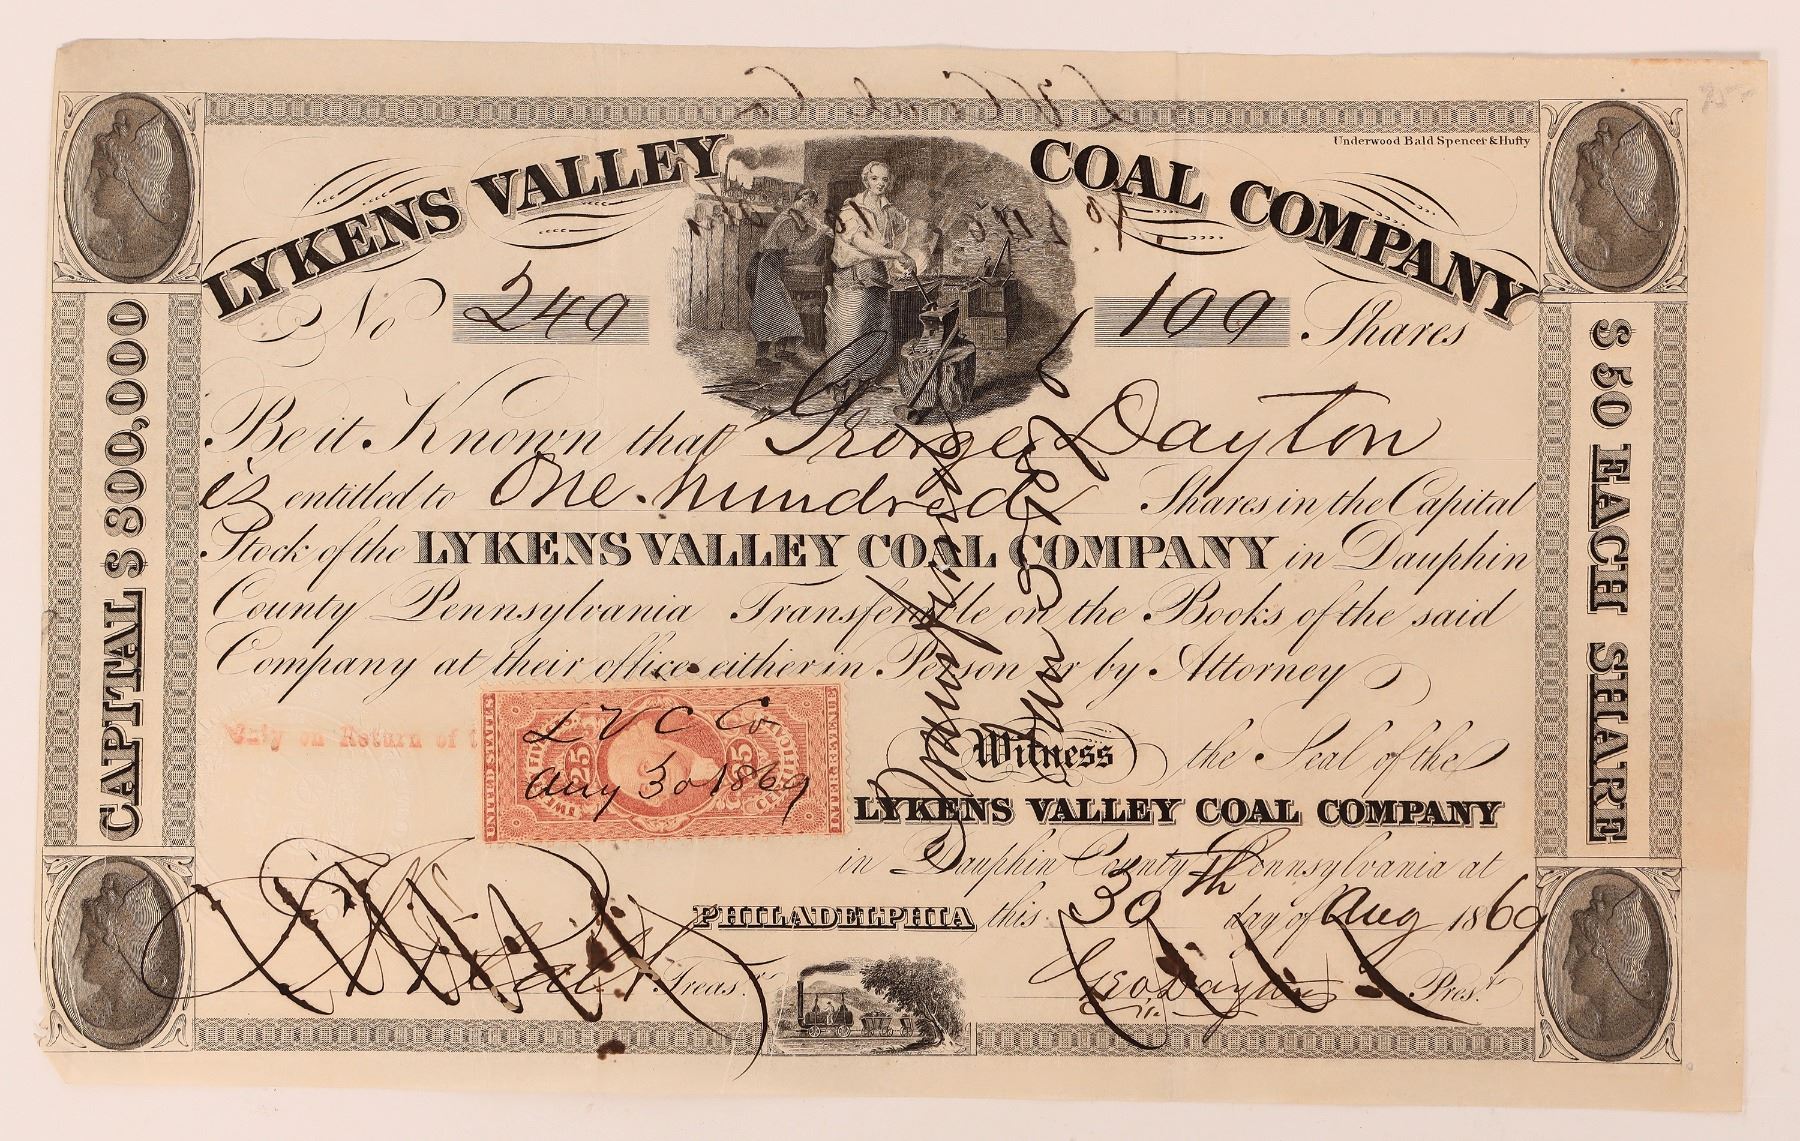 Underwood Bald Spencer & Hufty
LYKENS VALLEY COAL COMPANY
No 249
109 Shares
Be it Known that George Dayton
is entitled to One hundred Shares in the Capital
Stock of the LYKENS VALLEY COAL COMPANY in Dauphin
County Pennsylvania Transferable on the Books of the said
Company at their office either in Person or by Attorney
CAPITAL $800,000
$50 EACH SHARE
only on Return of
UNITED STATES
INTER. REVENUE
25 25
L V C Co
Aug 30 1869
Witness the Seal of the
LYKENS VALLEY COAL COMPANY
in Dauphin County Pennsylvania at
PHILADELPHIA this 30th day of Aug 1869
Treasr.
Geo Dayton Prest.